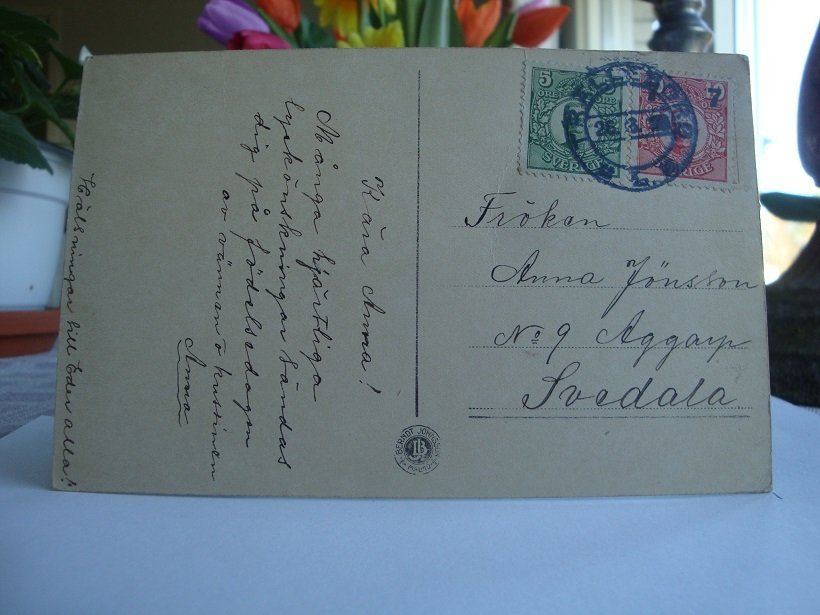 Kära Anna!
Många hjärtliga
lyckönskningar sändas
dig på födelsedagen
av vännen o kusinen
Anna
Hälsningar till Eder alla!
5
ÖRE
SVERIGE
7
7
Fröken
Anna Jönsson
No 9 Aggarp
Svedala
BERNDT JOHNSSON
JB
MALMÖ